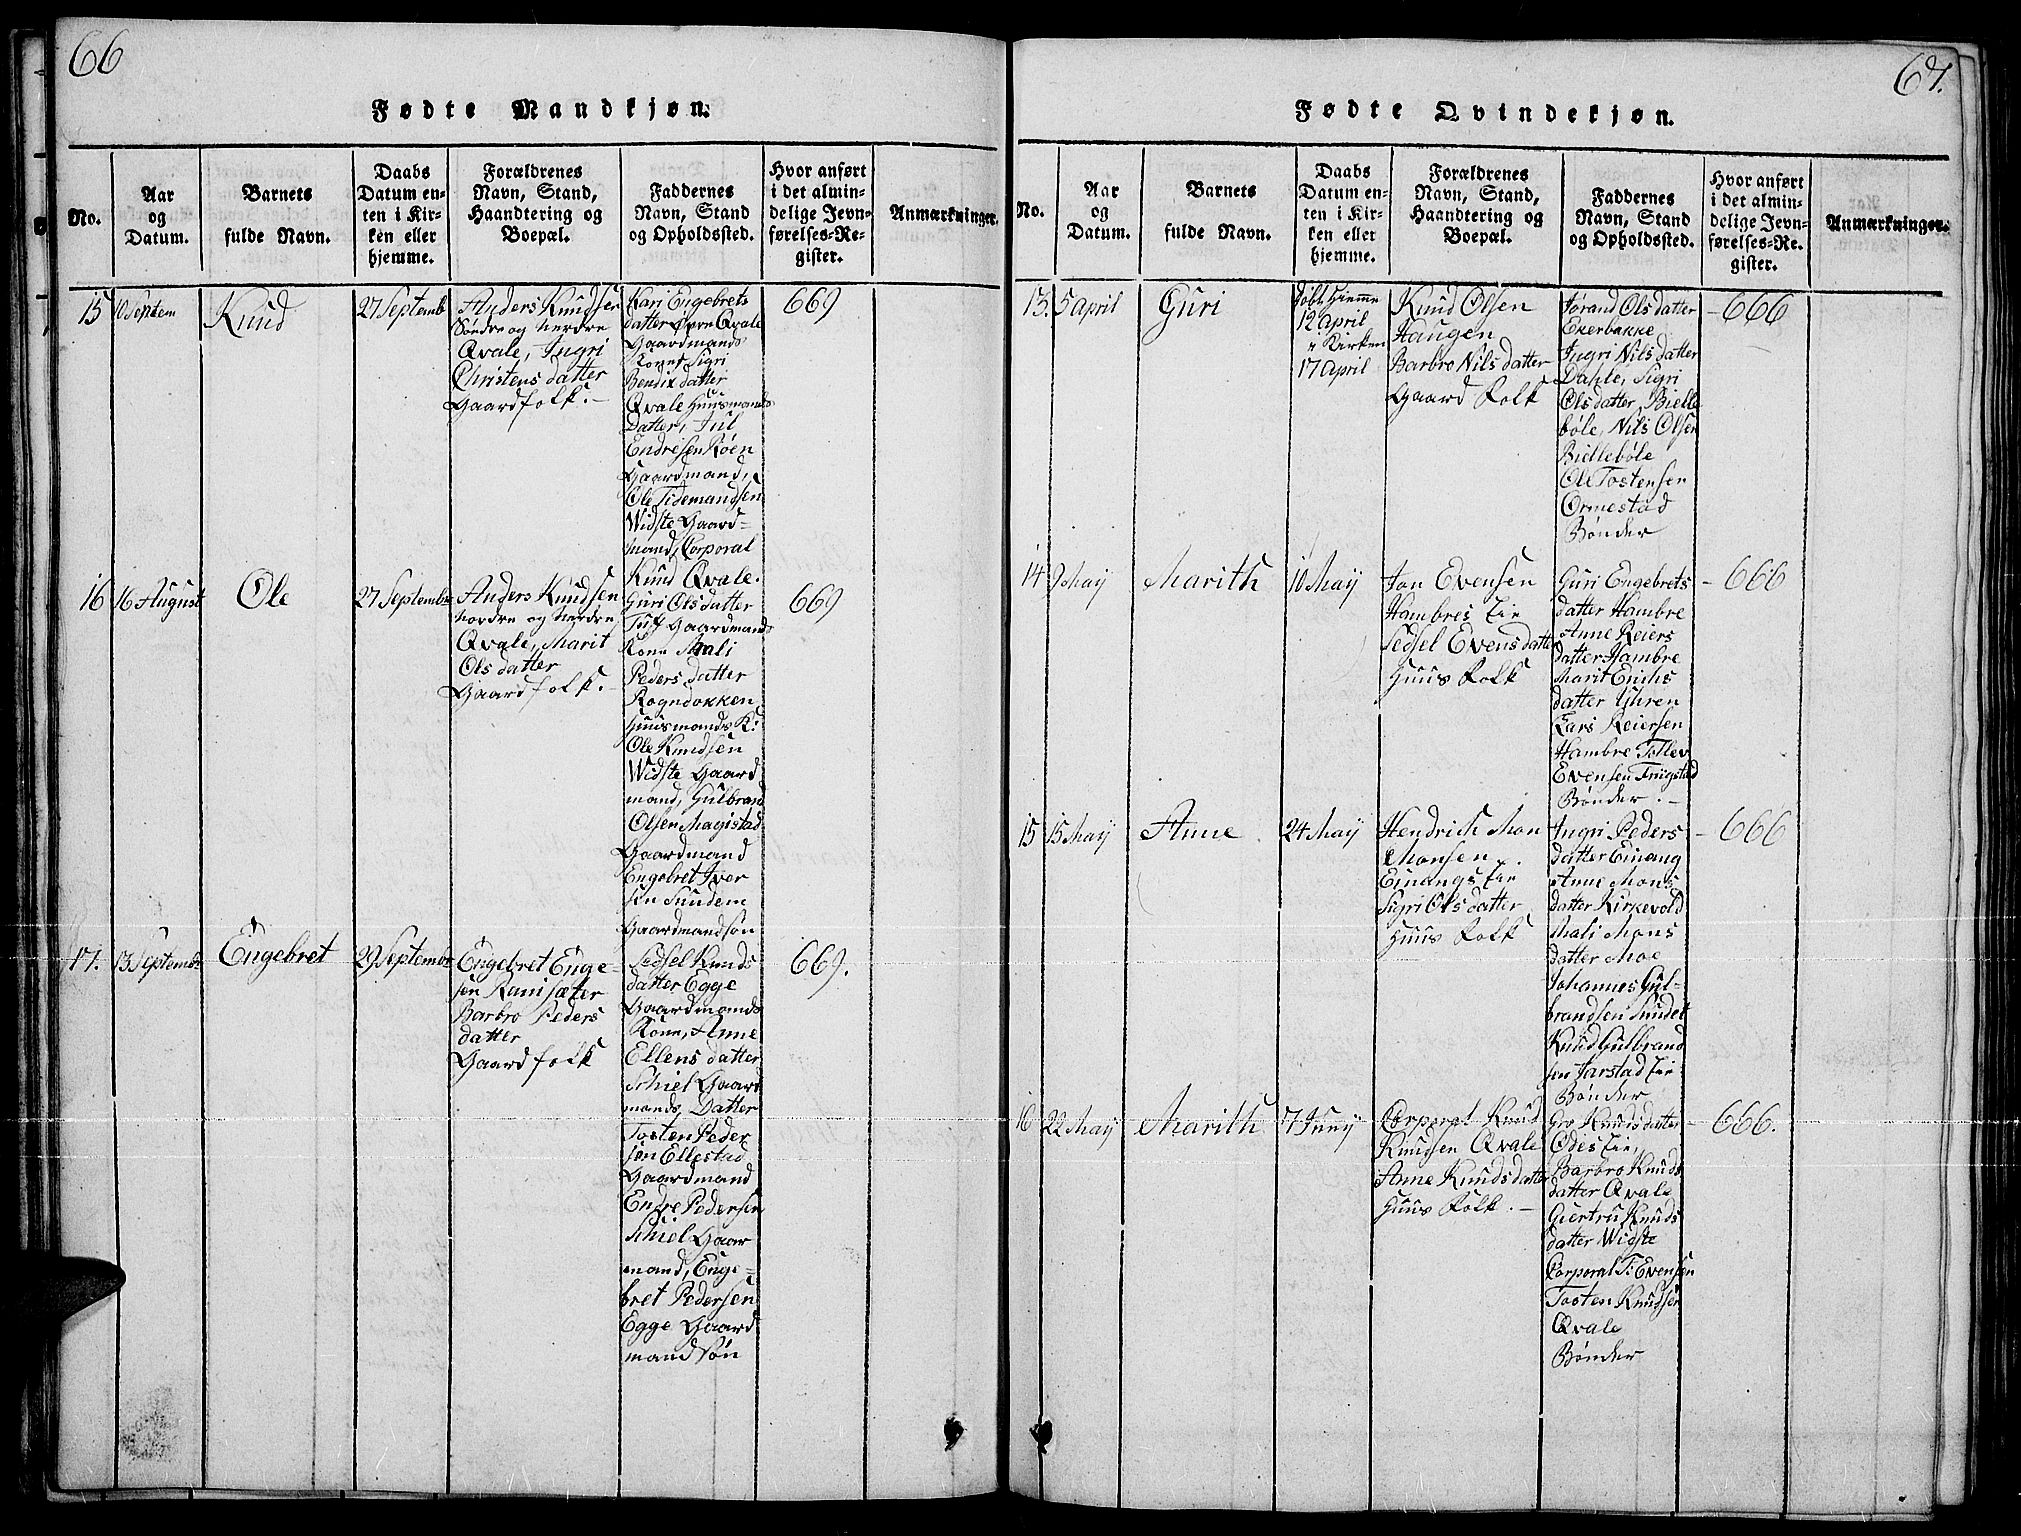 66
Fødte Mandkjøn.
No.
Aar
og
Datum.
Barnets
fulde Navn.
Daabs
Datum en-
ten i Kir-
ken eller
hjemme.
Forældrenes
Navn, Stand,
Haandtering og
Boepæl.
Faddernes
Navn, Stand
og Opholdssted.
Hvor anført
i det almin-
delige Jevn-
førelses-Re-
gister.
Anmærkninger.
15
10 Septem
Knud
27 Septemb
Anders Knudsen
Søndre og nerdre
Qvale, Ingri
Christens datter
Gaardfolk.-
Kari Engebrets
datter Øvre Qvale
Gaardmands
Kone Sigri
Bendix datter
Qvale Huusmands
Datter, Jul
Endresen Røen
Gaardmand,
Ole Tidemandsen
Widste Gaard-
mand, Corporal
Knud Qvale.
669
16
16 August
Ole
27 Septembr
Anders Knudsen
nordre og nerdre
Qvale, Marit
Ols datter
Gaardfolk.-
Guri Olsdatter
Gaardmands
Kone Mali
Peders datter
Rogndokken
Huusmands K:
Ole Knudsen
Widste Gaard
mand, Gulbrand
Olsen Magistad
Gaardmand
Engebret Iver
sen Sundem
Gaardmandsøn
669
17.
13 Septembr
Engebret
29 Septembr
Engebret Enge-
sen Ranisæter
Barbro Peders
datter
Gaardfolk
Sedsel Knuds
datter Egge
Gaardmands
Kone, Anne
Ellens datter
Schiel Gaard
mands Datter
Tosten Peder
sen Ellestad
Gaardmand
Endre Pedersen
Schiel Gaar
mand, Enge-
bret Pedersen
Egge Gaard
mandsøn
669.
67.
Fødte Qvindekjøn.
No.
Aar
og
Datum.
Barnets
fulde Navn.
Daabs
Datum en-
ten i Kir-
ken eller
hjemme.
Forældrenes
Navn, Stand,
Haandtering og
Boepæl.
Faddernes
Navn, Stand
og Opholdssted.
Hvor anført
i det almin-
delige Jevn-
førelses-Re-
gister.
Anmærkninger.
13.
5 april
Guri
døbt Hiemme
12 April
i Kirken
17 April
Knud Olsen
Haugen
Barbro Nils datter
Gaard Folk
Jørand Olsdatter
Ekerbakke
Ingri Nils datter
Dahle, Sigri
Ols datter, Bielle
bøle, Nils Olsen
Biellebøle
Ole Tostensen
Ormestad
Bønder
- 666
14
9 May
Marith
10 May
Jon Evensen
Hambres Eie
Sedsel Evens datter
Huus Folk
Guri Engebrets
datter Hambre
Anne Reiers
datter Hambre
Marit Erichs
datter Yhren
Lars Reiersen
Hambre Tollev
Evensen Trugstad
Bønder.-
- 666
15
15 May
Anne
24 May
Hendrich Mon
Monsen
Einangs Eie
Sigri Ols datter
Huus Folk
Ingri Peders
datter Einang
Anne Mons
datter Kirkevold
Mali Mons
datter Moe
Johannes Gul-
brandsen Sundet
Knud Gulbrand
sen Jarstad Eie
Bønder
- 666
16
22 May
Marith
7 Juny
Corporal Knud
Knudsen Qvale
Anne Knuds datter
Huus Folk.-
Gro Knuds datter
Ødes Eie,
Barbro Knuds
datter Qvale
Giertru Knuds
datter Widste
Corporal T: Evensen
Tosten Knudsen
Qvale
Bønder
- 666.